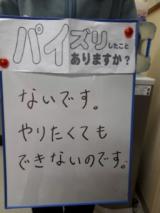 パイズリしたこと
ありますか?
ないです。
やりたくても
できないのです。